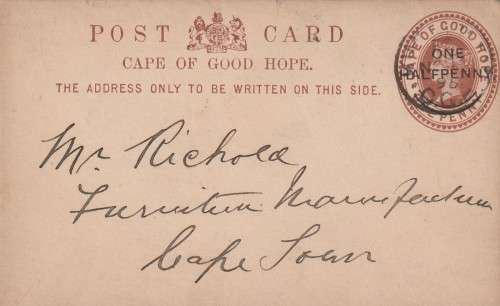 POST CARD
CAPE OF GOOD HOPE.
THE ADDRESS ONLY TO BE WRITTEN ON THIS SIDE.
CAPE OF GOOD HOPE
ONE
HALFPENNY
PENNY
Mr Richold
Furniture Manufacturer
Cape Town